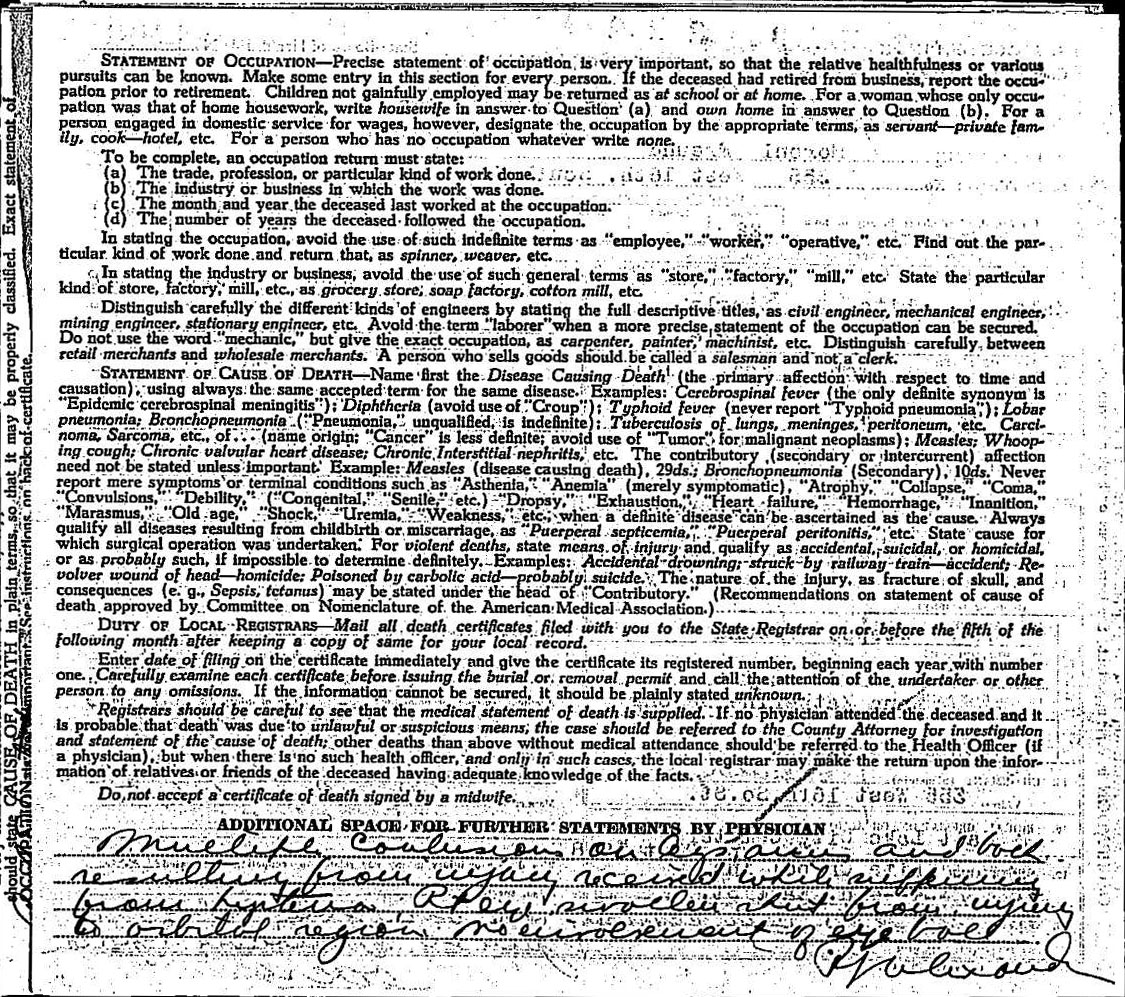 STATEMENT OF OCCUPATION—Precise statement of occupation is very important, so that the relative healthfulness or various
pursuits can be known. Make some entry in this section for every person. If the deceased had retired from business, report the occu-
pation prior to retirement. Children not gainfully employed may be returned as at school or at home. For a woman whose only occu-
pation was that of home housework, write housewife in answer to Question (a) and own home in answer to Question (b). For a
person engaged in domestic service for wages, however, designate the occupation by the appropriate terms, as servant—private fam-
ily, cook—hotel, etc. For a person who has no occupation whatever write none.
To be complete, an occupation return must state:
(a) The trade, profession, or particular kind of work done.
(b) The industry or business in which the work was done.
(c) The month and year the deceased last worked at the occupation.
(d) The number of years the deceased followed the occupation.
In stating the occupation, avoid the use of such indefinite terms as "employee," "worker," "operative," etc. Find out the par-
ticular kind of work done and return that, as spinner, weaver, etc.
In stating the industry or business, avoid the use of such general terms as "store," "factory," "mill," etc. State the particular
kind of store, factory, mill, etc., as grocery store, soap factory, cotton mill, etc.
Distinguish carefully the different kinds of engineers by stating the full descriptive titles, as civil engineer, mechanical engineer,
mining engineer, stationary engineer, etc. Avoid the term "laborer" when a more precise statement of the occupation can be secured.
Do not use the word "mechanic," but give the exact occupation, as carpenter, painter, machinist, etc. Distinguish carefully between
retail merchants and wholesale merchants. A person who sells goods should be called a salesman and not a clerk.
STATEMENT OF CAUSE OF DEATH—Name first the Disease Causing Death (the primary affection with respect to time and
causation), using always the same accepted term for the same disease. Examples: Cerebrospinal fever (the only definite synonym is
"Epidemic cerebrospinal meningitis"); Diphtheria (avoid use of "Croup"); Typhoid fever (never report "Typhoid pneumonia"); Lobar
pneumonia; Bronchopneumonia ("Pneumonia," unqualified, is indefinite); Tuberculosis of lungs, meninges, peritoneum, etc. Carci-
noma, Sarcoma, etc., of... (name origin; "Cancer" is less definite; avoid use of "Tumor" for malignant neoplasms); Measles; Whoop-
ing cough; Chronic valvular heart disease; Chronic Interstitial nephritis, etc. The contributory (secondary or intercurrent) affection
need not be stated unless important. Example: Measles (disease causing death), 29ds.; Bronchopneumonia (Secondary), 10ds. Never
report mere symptoms or terminal conditions such as "Asthenia," "Anemia" (merely symptomatic), "Atrophy," "Collapse," "Coma,"
"Convulsions," "Debility," ("Congenital," "Senile," etc.) "Dropsy," "Exhaustion," "Heart failure," "Hemorrhage," "Inanition,"
"Marasmus," "Old age," "Shock," "Uremia," "Weakness," etc., when a definite disease can be ascertained as the cause. Always
qualify all diseases resulting from childbirth or miscarriage, as "Puerperal septicemia," "Puerperal peritonitis," etc. State cause for
which surgical operation was undertaken. For violent deaths, state means of injury and qualify as accidental, suicidal, or homicidal,
or as probably such, if impossible to determine definitely. Examples: Accidental drowning; struck by railway train—accident; Re-
volver wound of head—homicide; Poisoned by carbolic acid—probably suicide. The nature of the injury, as fracture of skull, and
consequences (e. g., Sepsis, tetanus) may be stated under the head of "Contributory." (Recommendations on statement of cause of
death approved by Committee on Nomenclature of the American Medical Association.)
DUTY OF LOCAL REGISTRARS—Mail all death certificates filed with you to the State Registrar on or before the fifth of the
following month after keeping a copy of same for your local record.
Enter date of filing on the certificate immediately and give the certificate its registered number, beginning each year with number
one. Carefully examine each certificate before issuing the burial or removal permit and call the attention of the undertaker or other
person to any omissions. If the information cannot be secured, it should be plainly stated unknown.
Registrars should be careful to see that the medical statement of death is supplied. If no physician attended the deceased and it
is probable that death was due to unlawful or suspicious means, the case should be referred to the County Attorney for investigation
and statement of the cause of death; other deaths than above without medical attendance should be referred to the Health Officer (if
a physician), but when there is no such health officer, and only in such cases, the local registrar may make the return upon the infor-
mation of relatives or friends of the deceased having adequate knowledge of the facts.
Do not accept a certificate of death signed by a midwife.
ADDITIONAL SPACE FOR FURTHER STATEMENTS BY PHYSICIAN
Multiple Contusions on legs, arms and back
resulting from injury received while suffering
from hysteria. Rt eye swollen shut from injury
to orbital region. No involvement of eye ball
should state CAUSE OF DEATH in plain terms, so that it may be properly classified. Exact statement of
OCCUPATION is very important. See instructions on back of certificate.